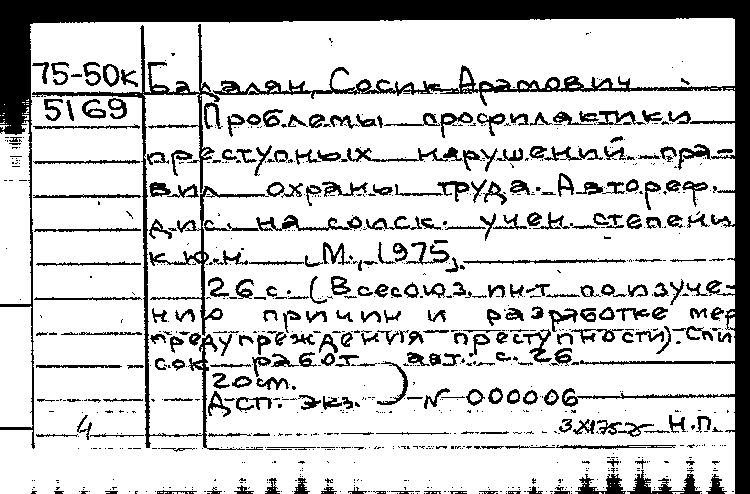 75-50к Бадалян, Сосик Арамович
5169 Проблемы профилактики
преступных нарушений пра-
вил охраны труда. Автореф.
дис. на соиск. учен. степени
к.ю.н. [М., 1975].
26 с. (Всесоюз. ин-т по изуче-
нию причин и разработке мер
предупреждения преступности). Спи-
сок работ авт.: с. 26
20см.
ДСП. экз. N 000006
4 Н.П.